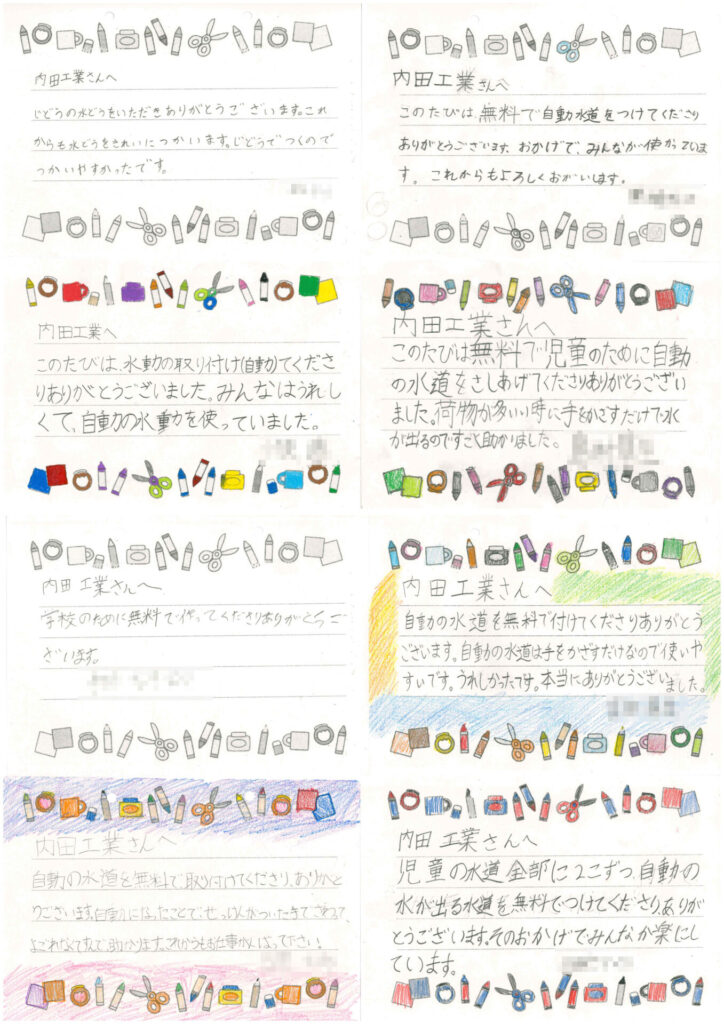 内田工業さんへ
じどうの水どうをいただきありがとうございます。これ
からも水どうをきれいにつかいます。じどうでつくので
つかいやすかったです。
内田工業さんへ
このたびは、無料で自動水道をつけてくださり
ありがとうございます。おかげで、みんなが使かっていま
す。これからもよろしくおがいします。
内田工業へ
このたびは、水動の取り付け(自動)てくださ
りありがとうございました。みんなはうれし
くて、自動の水動を使っていました。
内田工業さんへ
このたびは無料で児童のために自動
の水道をさしあげてくださりありがとうござい
ました。荷物が多いい時に手をかざすだけで水
が出るのですごく助かりました。
内田工業さんへ
学校のために無料で作ってくださりありがとうご
ざいます。
内田工業さんへ
自動の水道を無料で付けてくださりありがとう
ございます。自動の水道は手をかざすだけなので使いや
すいです。うれしかったです。本当にありがとうございました。
内田工業さんへ
自動の水道を無料で取り付けてくださり、ありがと
うございます。自動になったことで、せっけんがついた手でさわって
よごれなくてすんで助かります。これからもお仕事がんばって下さい!
内田工業さんへ
児童の水道全部に2こずつ、自動の
水が出る水道を無料でつけてくださり、ありが
とうございます。そのおかげでみんなが楽にし
ています。